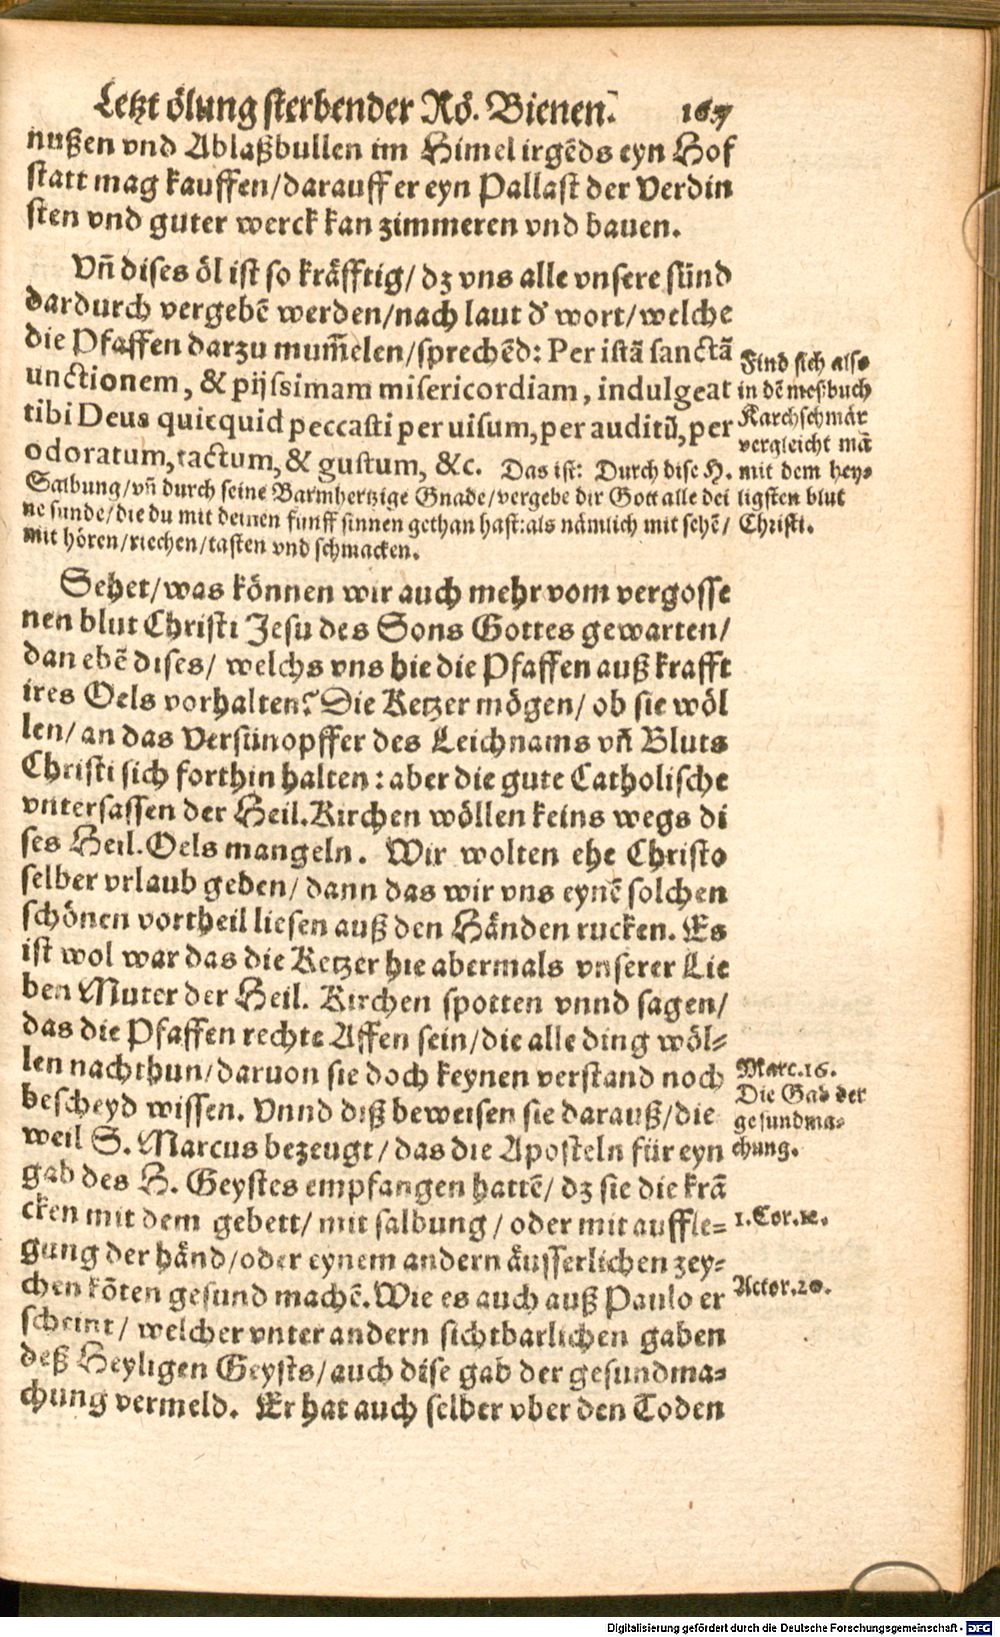 Letzt ölung sterbender Rö. Bienen. 167
nußen vnd Ablaßbullen im Himel irgẽds eyn Hof
statt mag kauffen/darauff er eyn Pallast der Verdin
sten vnd guter werck kan zimmeren vnd bauen.
Vñ dises öl ist so kräfftig/ dz vns alle vnsere sünd
dardurch vergebẽ werden/nach laut d' wort/welche
die Pfaffen darzu mum̃elen/sprechẽd: Per istã sanctã
unctionem, & pijssimam misericordiam, indulgeat
tibi Deus quicquid peccasti per uisum, per auditũ, per
odoratum, tactum, & gustum, &c. Das ist: Durch dise H.
Salbung/vñ durch seine Barmhertzige Gnade/vergebe dir Gott alle dei
ne sunde/die du mit deinen funff sinnen gethan hast:als nämlich mit sehẽ/
mit hören/riechen/tasten vnd schmacken.
Find sich also
in dẽ meßbuch
Karchschmär
vergleicht mã
mit dem hey-
ligsten blut
Christi.
Sehet/was können wir auch mehr vom vergosse
nen blut Christi Jesu des Sons Gottes gewarten/
dan ebẽ dises/ welchs vns hie die Pfaffen auß krafft
ires Oels vorhalten? Die Ketzer mögen/ ob sie wöl
len/ an das Versünopffer des Leichnams vñ Bluts
Christi sich forthin halten: aber die gute Catholische
vntersassen der Heil. Kirchen wöllen keins wegs di
ses Heil. Oels mangeln. Wir wolten ehe Christo
selber vrlaub geden/ dann das wir vns eynẽ solchen
schönen vortheil liesen auß den Händen rucken. Es
ist wol war das die Ketzer hie abermals vnserer Lie
ben Muter der Heil. Kirchen spotten vnnd sagen/
das die Pfaffen rechte Affen sein/die alle ding wöl-
len nachthun/daruon sie doch keynen verstand noch
bescheyd wissen. Vnnd diß beweisen sie darauß/die
weil S. Marcus bezeugt/ das die Aposteln für eyn
gab des H. Geystes empfangen hattẽ/ dz sie die krã
cken mit dem gebett/ mit salbung/ oder mit auffle-
gung der händ/oder eynem andern äusserlichen zey-
chen kõten gesund machẽ. Wie es auch auß Paulo er
scheint/ welcher vnter andern sichtbarlichen gaben
deß Heyligen Geysts/auch dise gab der gesundma-
chung vermeld. Er hat auch selber vber den Toden
Marc.16.
Die Gab der
gesundma-
chung.
1.Cor.12.
Actor.20.
Digitalisierung gefördert durch die Deutsche Forschungsgemeinschaft - DFG